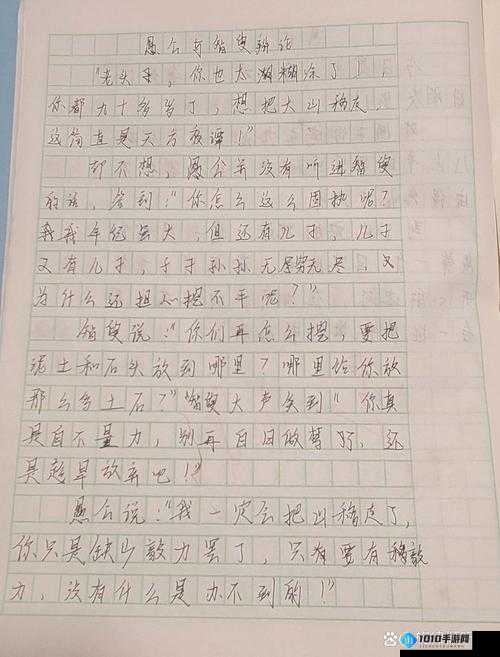 愚公与智叟辩论
“老头子，你也太糊涂了！
你都九十多岁了，想把大山移走，
这简直是天方夜谭！”
却不想，愚公并没有听进智叟
的话，答到：“你怎么这么固执呢？
我年纪虽大，但还有儿子，儿子
又有儿子，子子孙孙无穷无尽，又
为什么还担心挖不平呢？”
智叟说：“你们再怎么挖，要把
泥土和石头放到哪里？哪里给你放
那么多土石？”智叟大声笑到“你真
是自不量力，别再白日做梦了，还
是趁早放弃吧！”
愚公说：“我一定会把山移走了，
你只是缺少毅力罢了，只有要有毅
力，没有什么是办不到的！”
1010手游网